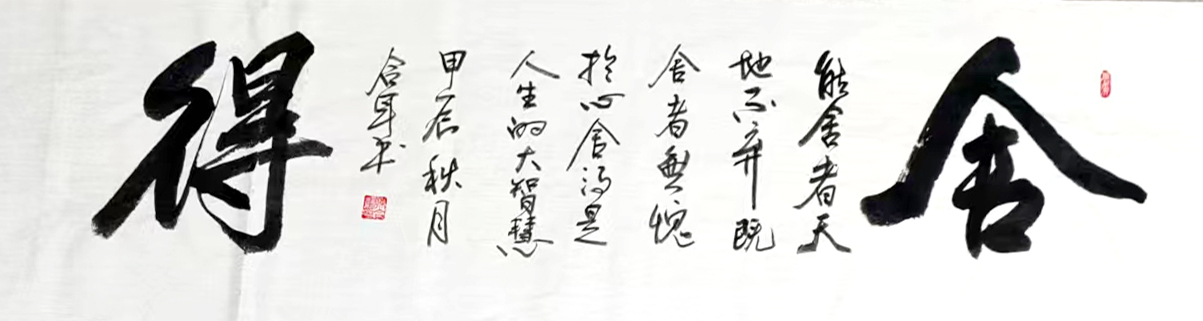 舍
能舍者天
地不弃既
舍者無愧
於心舍得是
人生的大智慧
甲辰秋月
得